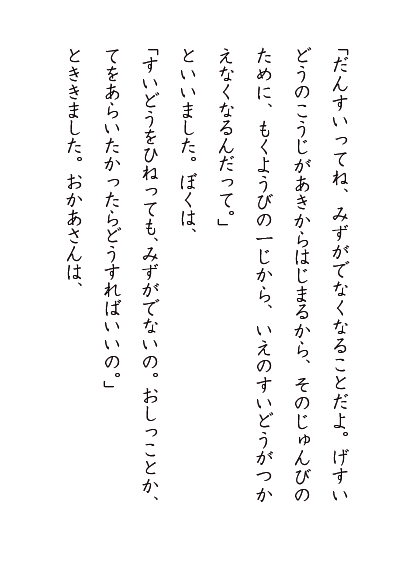 「だんすいってね、みずがでなくなることだよ。げすい
どうのこうじがあきからはじまるから、そのじゅんびの
ために、もくようびの一じから、いえのすいどうがつか
えなくなるんだって。」
といいました。ぼくは、
「すいどうをひねっても、みずがでないの。おしっことか、
てをあらいたかったらどうすればいいの。」
とききました。おかあさんは、